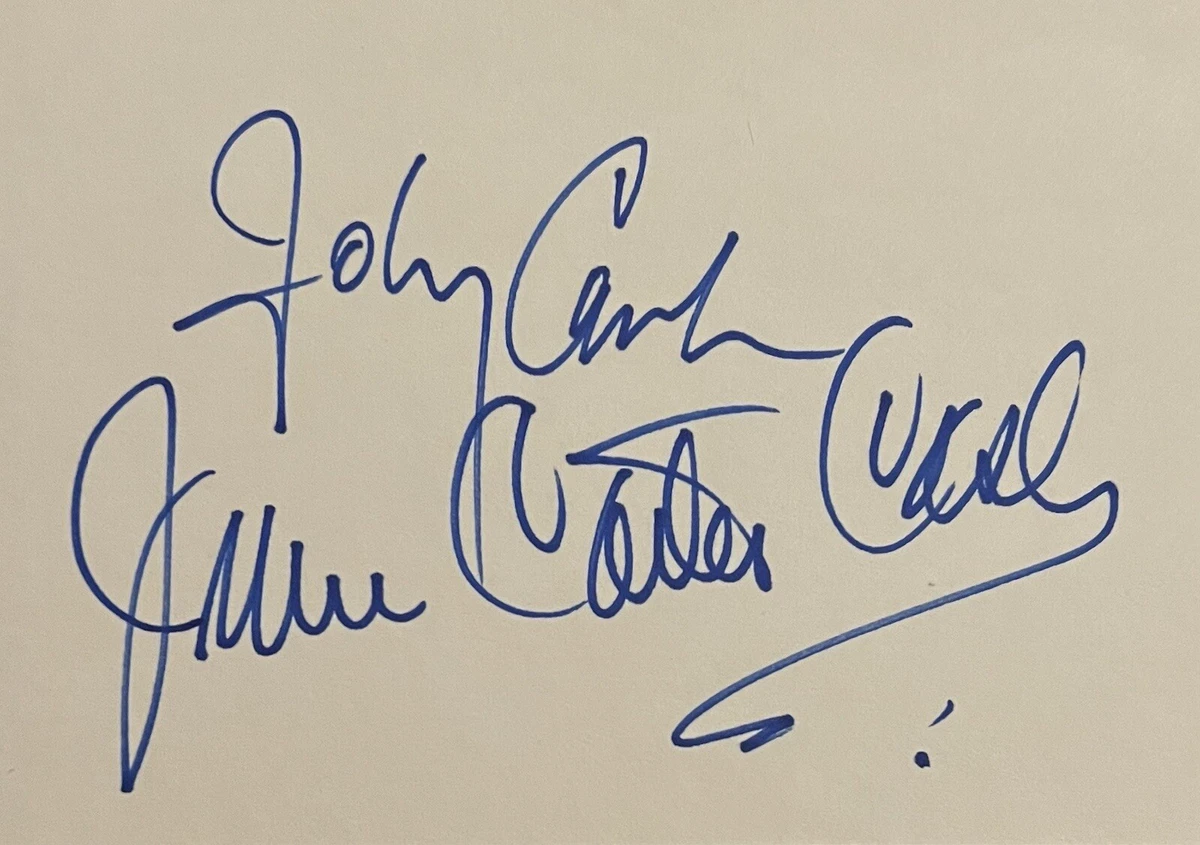 Johnny Cash
June Carter Cash